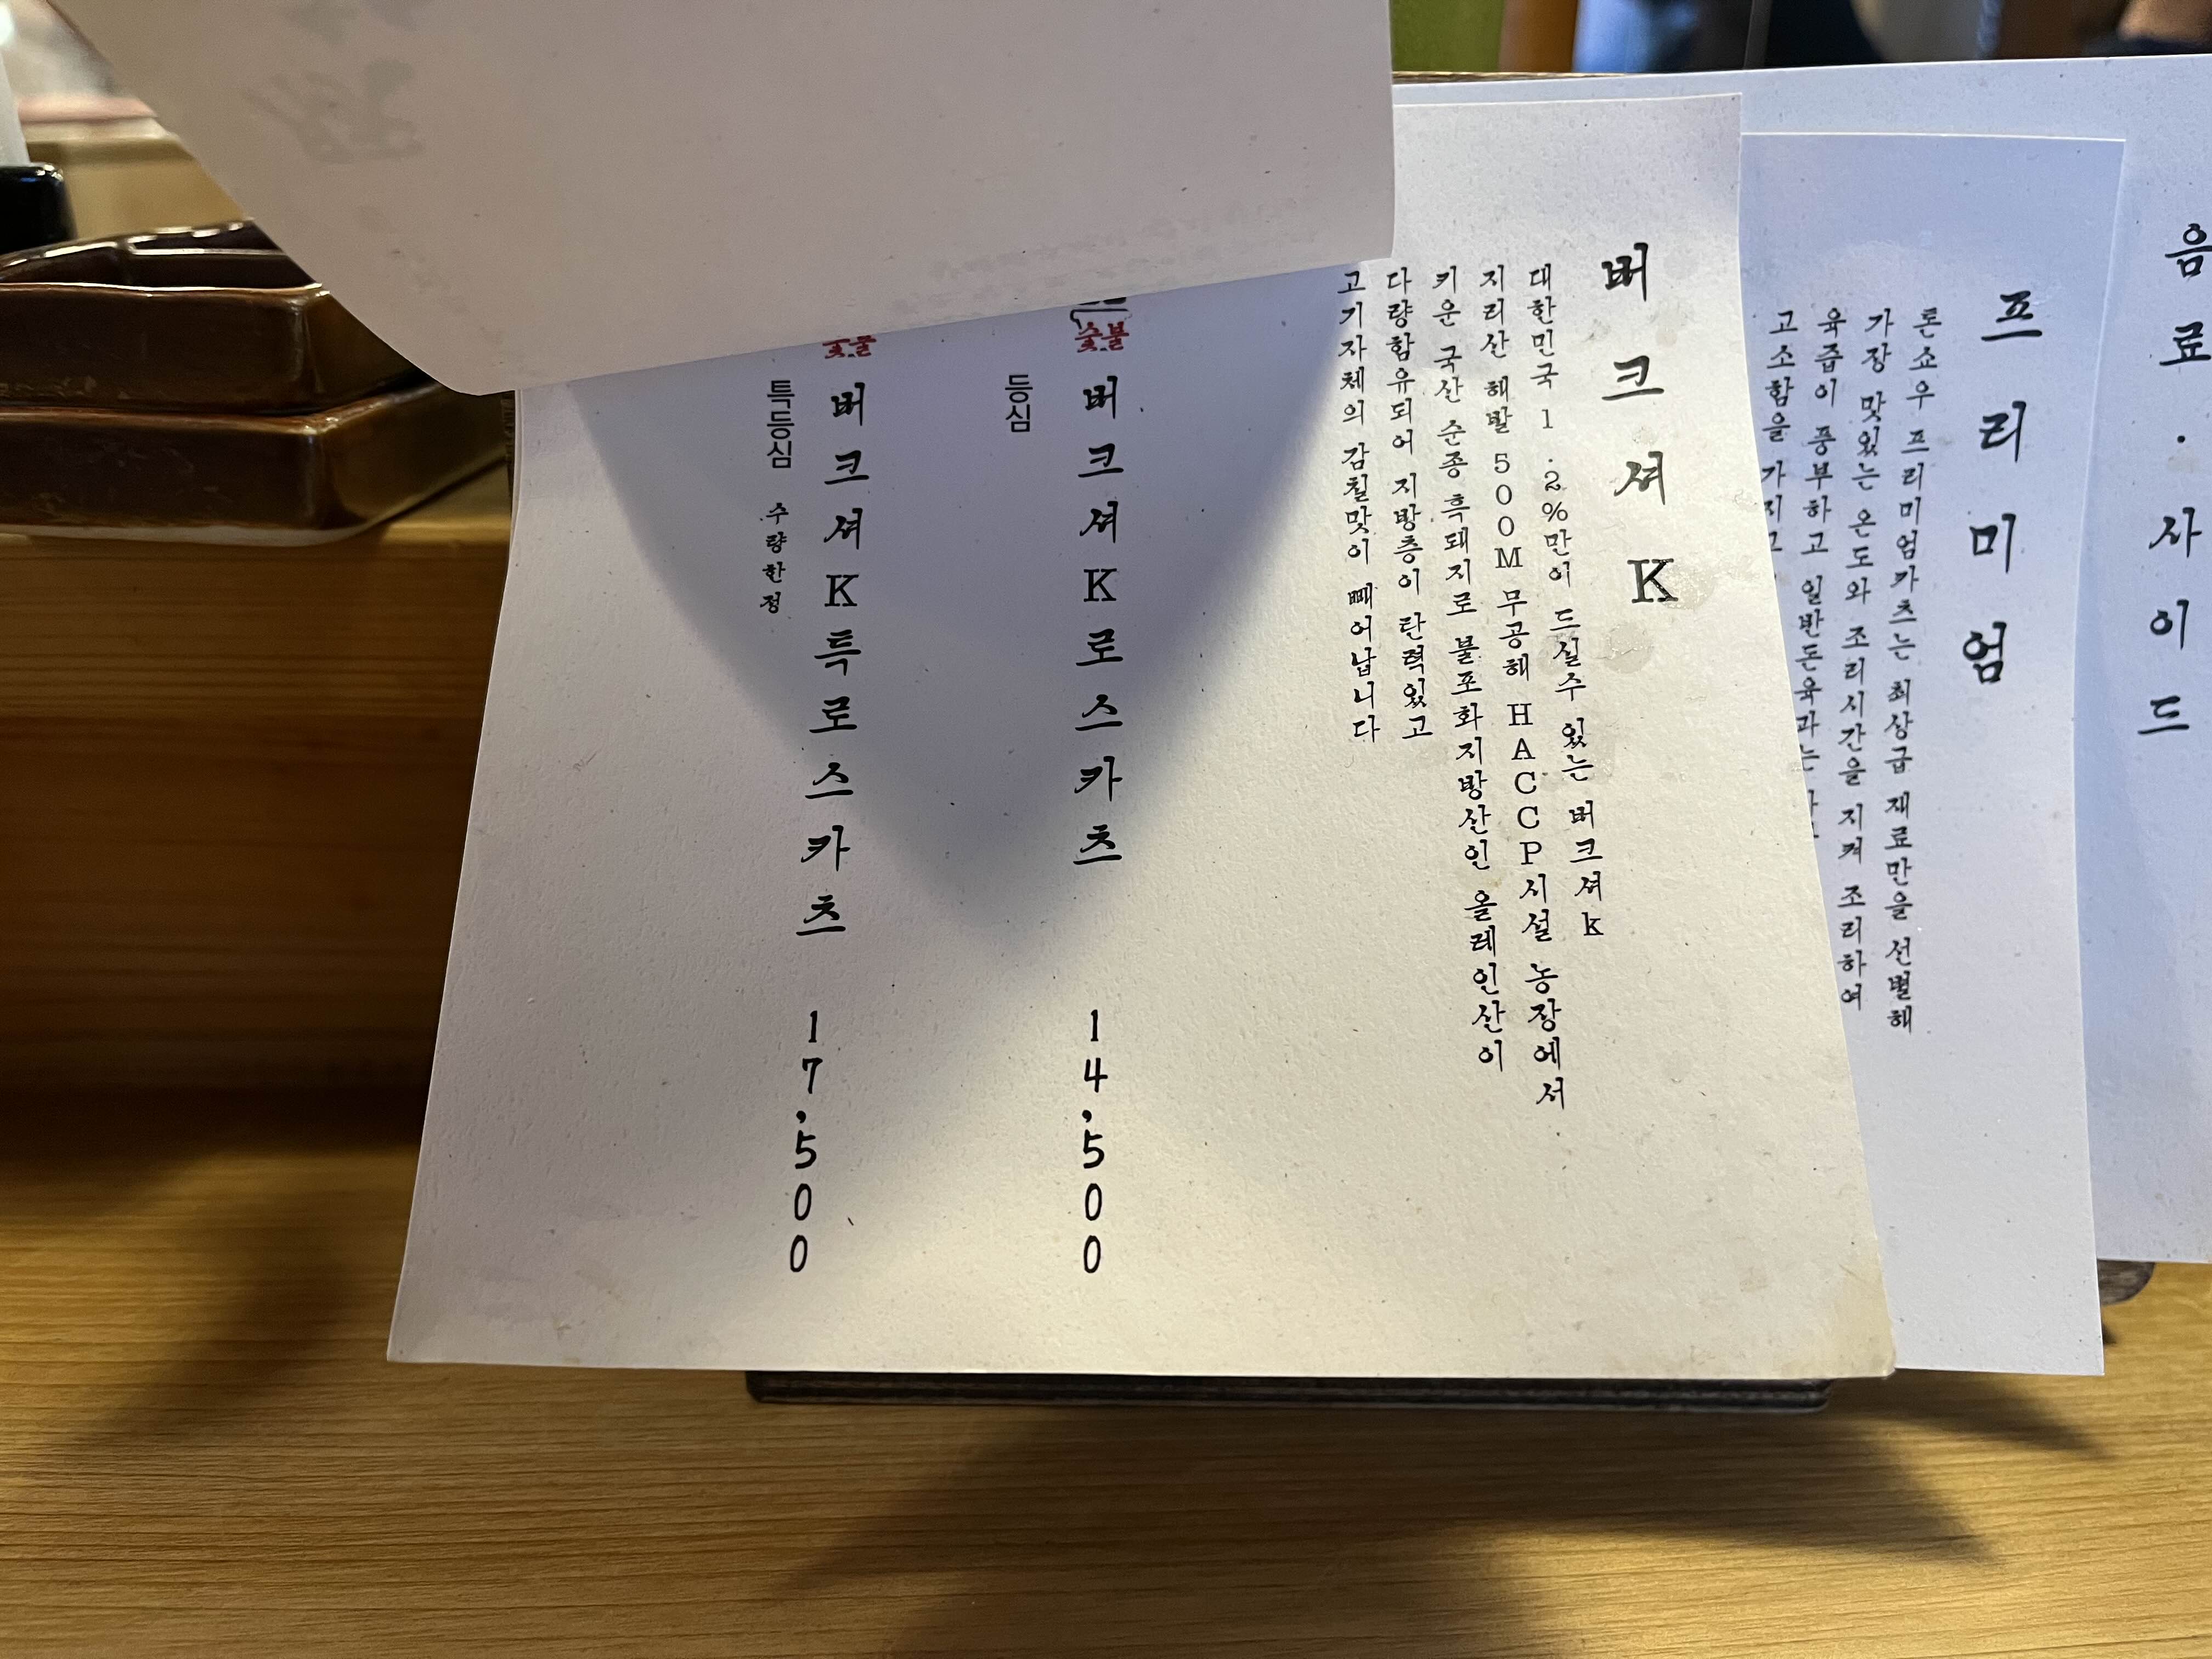 음료·사이드
프리미엄
톤쇼우 프리미엄카츠는 최상급 재료만을 선별해
가장 맛있는 온도와 조리시간을 지켜 조리하여
육즙이 풍부하고 일반돈육과는
고소함을
버크셔K
대한민국 1.2%만이 드실수 있는 버크셔k
지리산 해발 500M 무공해 HACCP시설 농장에서
키운 국산 순종 흑돼지로 불포화지방산인 올레인산이
다량함유되어 지방층이 탄력있고
고기자체의 감칠맛이 빼어납니다
숯불
버크셔K로스카츠 14,500
등심
숯불
버크셔K특로스카츠 17,500
특등심 수량한정